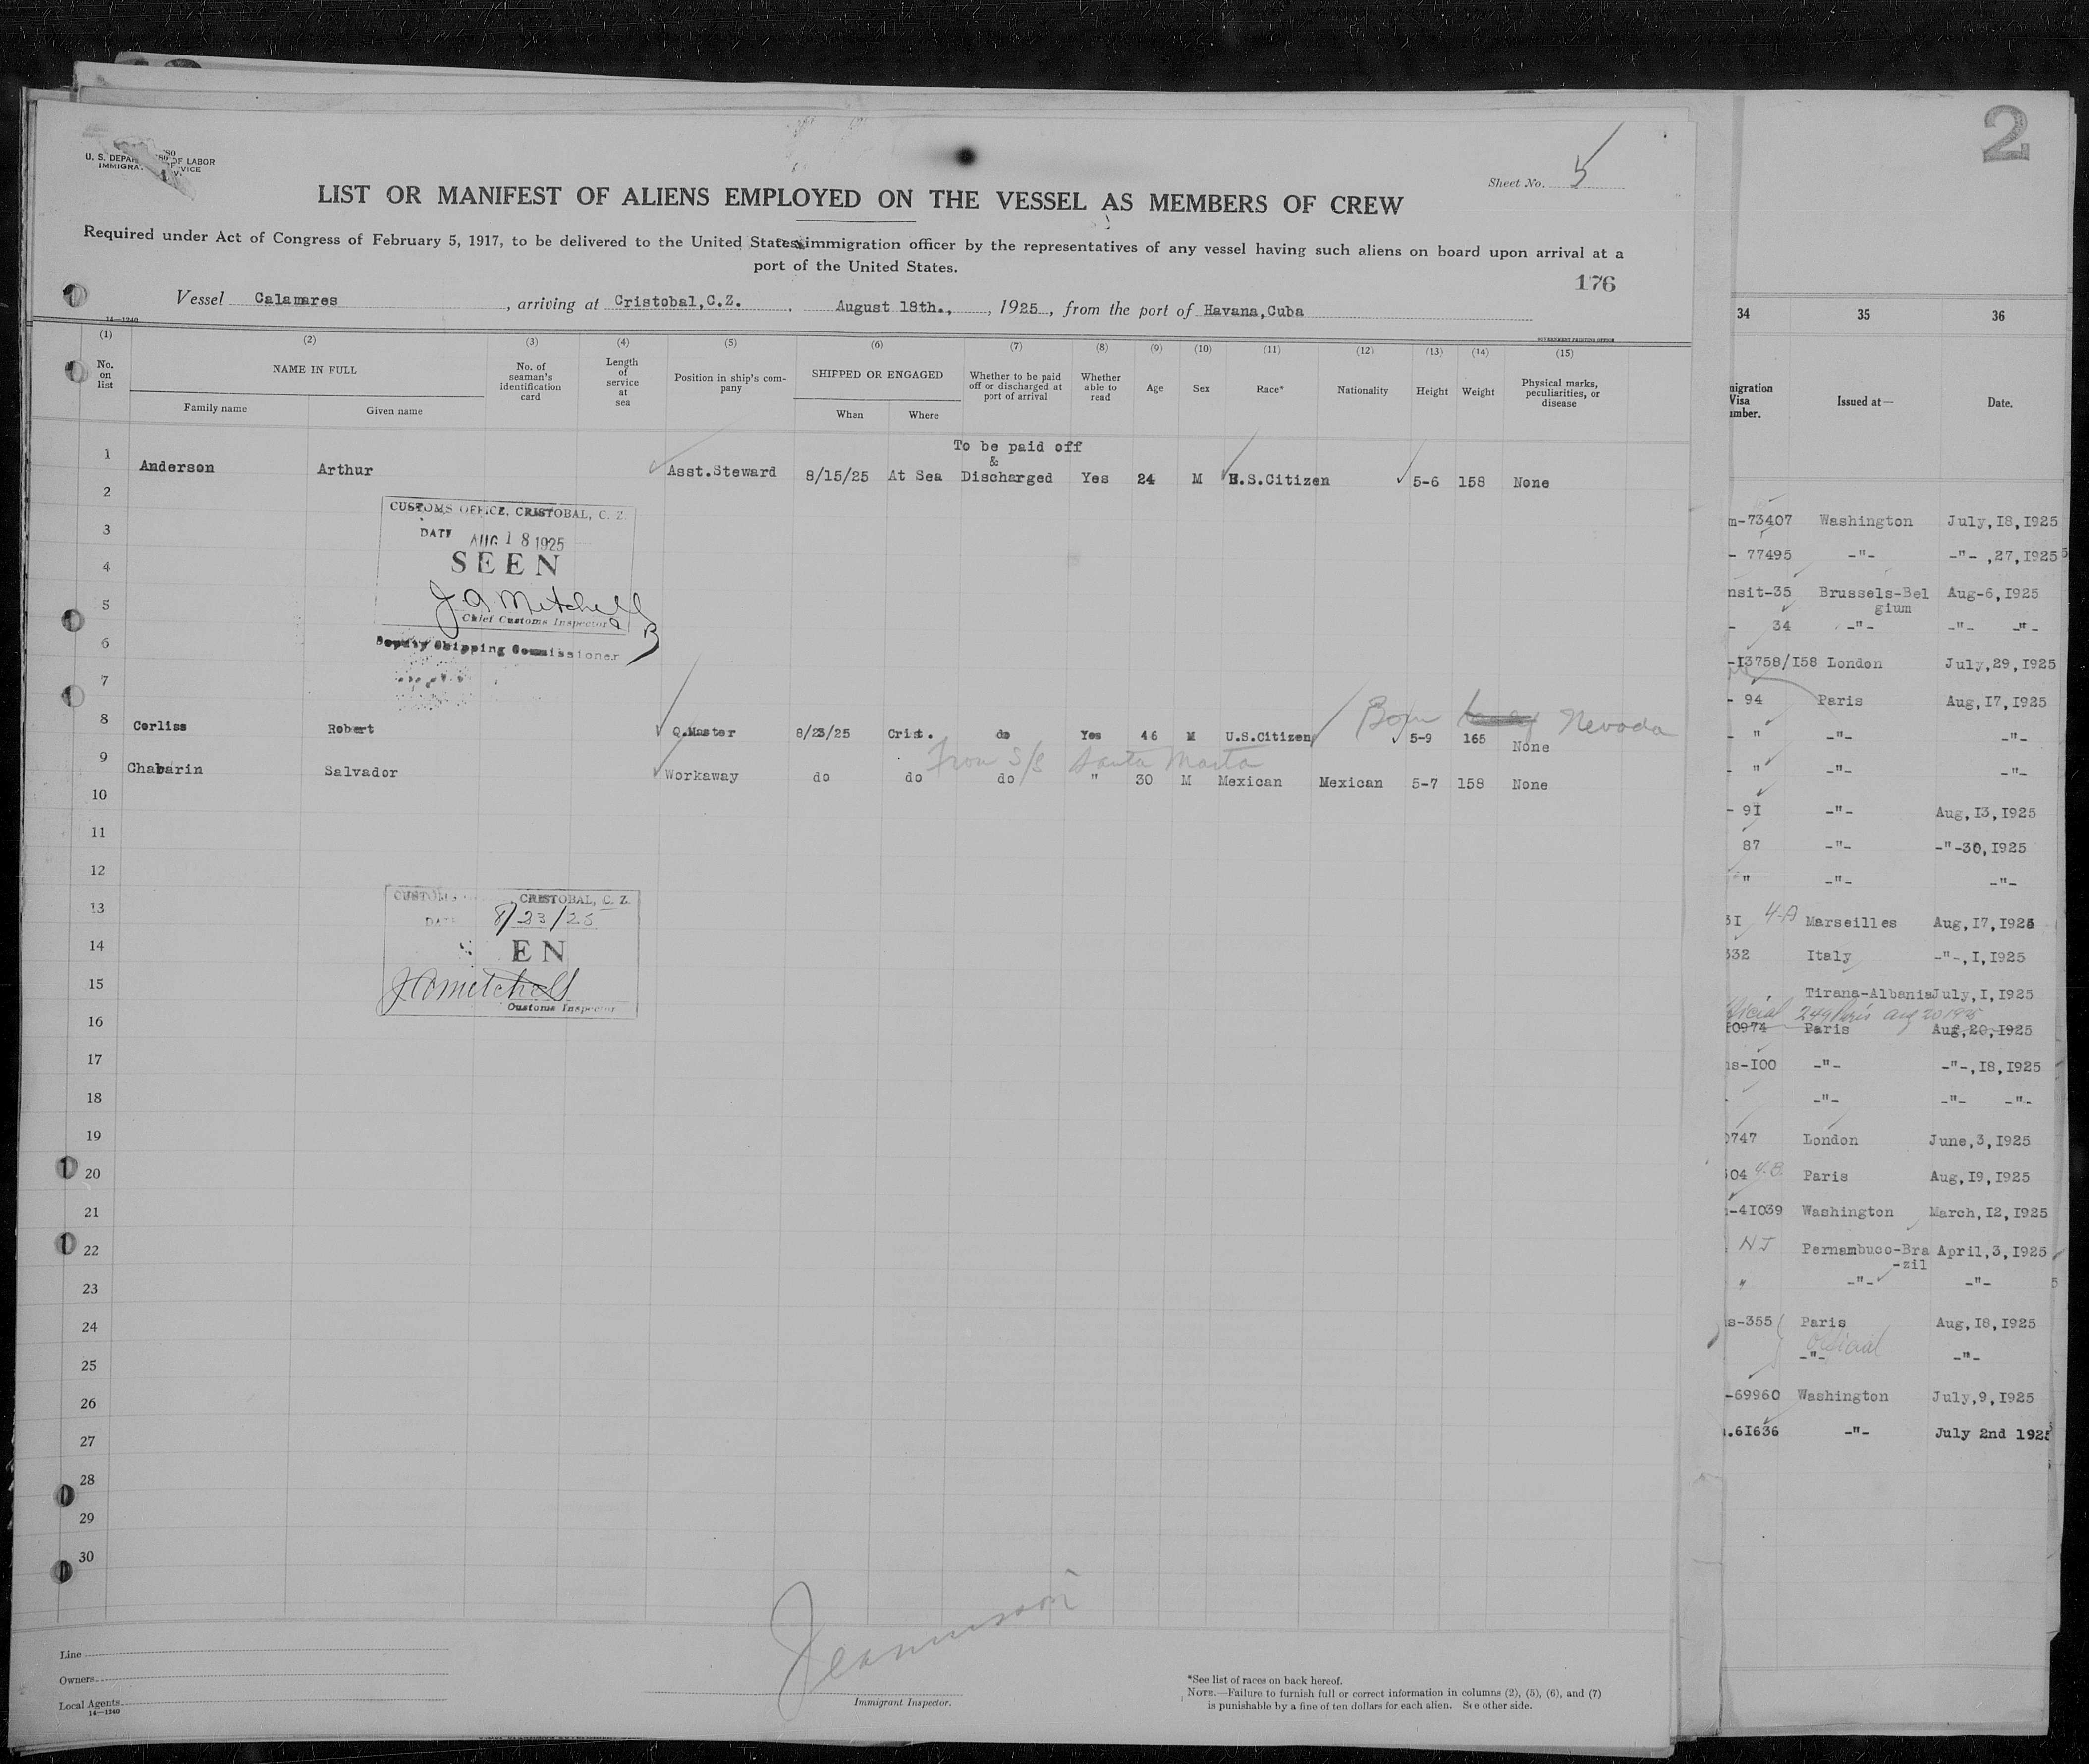 2
U. S. DEPA OF LABOR
IMMIGRA VICE
Sheet No. 5
LIST OR MANIFEST OF ALIENS EMPLOYED ON THE VESSEL AS MEMBERS OF CREW
Required under Act of Congress of February 5, 1917, to be delivered to the United States immigration officer by the representatives of any vessel having such aliens on board upon arrival at a
port of the United States.
176
Vessel Calamares, arriving at Cristobal,C.Z. August 18th., , 1925, from the port of Havana,Cuba
14—1240
GOVERNMENT PRINTING OFFICE
(1) (2) (3) (4) (5) (6) (7) (8) (9) (10) (11) (12) (13) (14) (15)
No. on list
NAME IN FULL
Family name
Given name
No. of seaman's identification card
Length of service at sea
Position in ship's company
SHIPPED OR ENGAGED
When
Where
Whether to be paid off or discharged at port of arrival
Whether able to read
Age
Sex
Race*
Nationality
Height
Weight
Physical marks, peculiarities, or disease
To be paid off
&
1 Anderson Arthur Asst.Steward 8/15/25 At Sea Discharged Yes 24 M U.S.Citizen 5-6 158 None
2
CUSTOMS OFFICE, CRISTOBAL, C. Z.
3
DATE AUG 18 1925
SEEN
4
J.A. Mitchell
5
Chief Customs Inspector
6
Deputy Shipping Commissioner
7
Born Nevada
8 Corliss Robert Q.Master 8/23/25 Crist. do Yes 46 M U.S.Citizen 5-9 165 None
From S/S Santa Marta
9 Chabarin Salvador Workaway do do do " 30 M Mexican Mexican 5-7 158 None
10
11
12
CUSTOMS CRISTOBAL, C. Z.
13
DATE 8/23/25
14
EN
15
J A Mitchell
Customs Inspector
16
17
18
19
20
21
22
23
24
25
26
27
28
29
30
Line
Owners
Local Agents
14—1240
Immigrant Inspector.
*See list of races on back hereof.
NOTE.—Failure to furnish full or correct information in columns (2), (5), (6), and (7)
is punishable by a fine of ten dollars for each alien. See other side.
34 35 36
migration Visa umber.
Issued at—
Date.
m-73407 Washington July,18,1925
- 77495 -"- -"- ,27,1925
nsit-35 Brussels-Bel Aug-6,1925
gium
- 34 -"- -"- -"-
-13758/158 London July,29,1925
- 94 Paris Aug,17,1925
- " -"- -"-
- " -"- -"-
- 91 -"- Aug,13,1925
87 -"- -"-30,1925
" -"- -"-
31 4-A Marseilles Aug,17,1925
332 Italy -"-,1,1925
Tirana-Albania July,1,1925
249 Paris Aug 20 1925
10974 Paris Aug,20,1925
as-100 -"- -"-,18,1925
- -"- -"- -"-
0747 London June,3,1925
304 4-B Paris Aug,19,1925
-41039 Washington March,12,1925
NJ Pernambuco-Bra April,3,1925
-zil
" -"- -"-
as-355 Paris Aug,18,1925
Official
-"- -"-
-69960 Washington July,9,1925
.61636 -"- July 2nd 1925